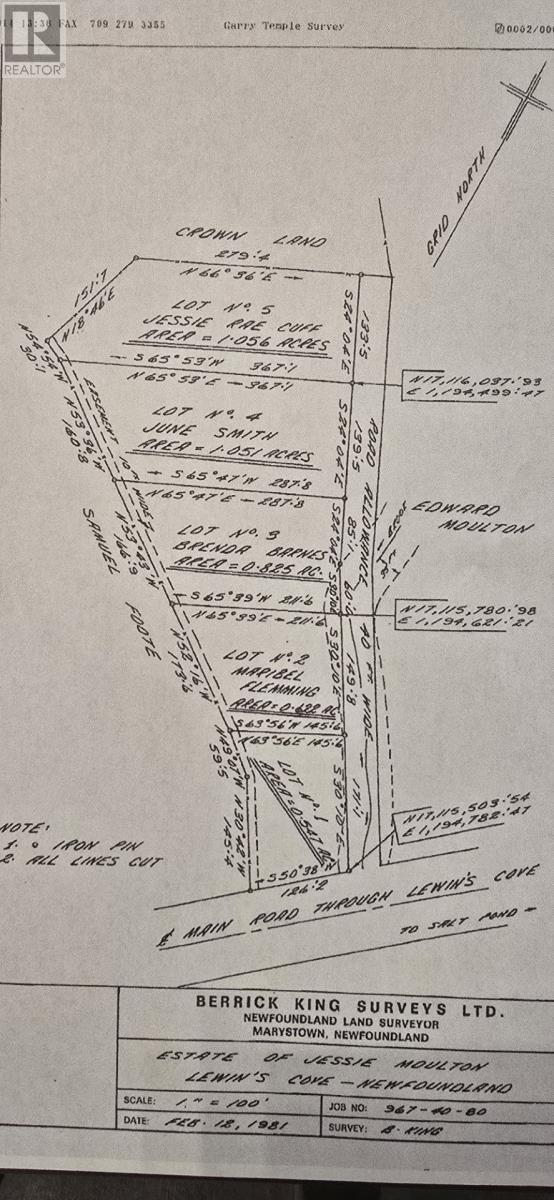 13:38 FAX 709 279 3355
Garry Temple Survey
0002/00
REALTOR®
GRID NORTH
CROWN LAND
279.4
N66°36'E
151.7
N18°46'E
LOT Nº. 5
JESSIE RAE CUFF
AREA = 1.056 ACRES
S24°04'E
133.5
S65°53'W 367.1
N65°53'E 367.1
N17,116,037.93
E 1,194,499.47
LOT Nº. 4
JUNE SMITH
AREA = 1.051 ACRES
S24°04'E
139.5
ROAD ALLOWANCE 40 FT WIDE
N53°36'W
160.8
EASEMENT 10 FT WIDE
S65°47'W 287.8
N65°47'E 287.8
EDWARD
MOULTON
LOT Nº. 3
BRENDA BARNES
AREA = 0.825 AC.
S24°04'E
85.1
60.0
SAMUEL FOOTE
S65°39'W 211.6
N65°39'E 211.6
N17,115,780.98
E 1,194,621.21
LOT Nº. 2
MARIBEL
FLEMMING
AREA = 0.622 AC.
S30°10'E
149.8
N52°16'W
173.6
S63°56'W 145.6
N63°56'E 145.6
LOT Nº. 1
AREA = 0.547 AC.
S30°10'E
171.1
59.5
N30°42'W
145.4
N17,115,503.54
E 1,194,782.47
S50°38'W
126.2
NOTE:
1. o IRON PIN
2. ALL LINES CUT
℄ MAIN ROAD THROUGH LEWIN'S COVE
TO SALT POND
BERRICK KING SURVEYS LTD.
NEWFOUNDLAND LAND SURVEYOR
MARYSTOWN, NEWFOUNDLAND
ESTATE OF JESSIE MOULTON
LEWIN'S COVE – NEWFOUNDLAND
SCALE: 1" = 100'
JOB NO: 967-40-80
DATE: FEB. 12, 1981
SURVEY: B. KING